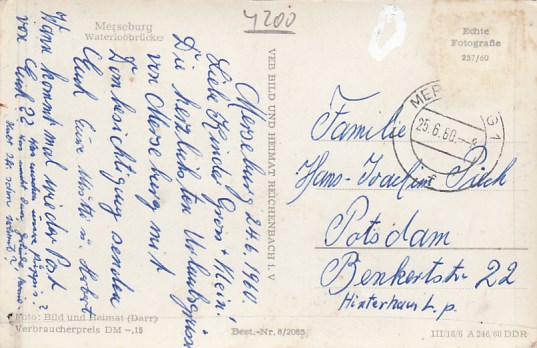 Merseburg
Waterloobrücke
4200
Echte
Fotografie
237/60
VEB BILD UND HEIMAT REICHENBACH I. V
Merseburg 24.6.1960
Liebe Kinder Groß + Klein!
Die herzlichsten Urlaubsgrüsse
von Merseburg mit
Dombesichtigung senden
Euch Eure Mutti u.
Wann kommt mal wieder Post
von Euch??
MERSEBURG 1
25.6.60
Familie
Hans-Joachim
Potsdam
Benkertstr. 22
Hinterhaus l. p.
Foto: Bild und Heimat (Darr)
Verbraucherpreis DM -,15
Best.-Nr. 8/2085
III/18/6 A 246/60 DDR